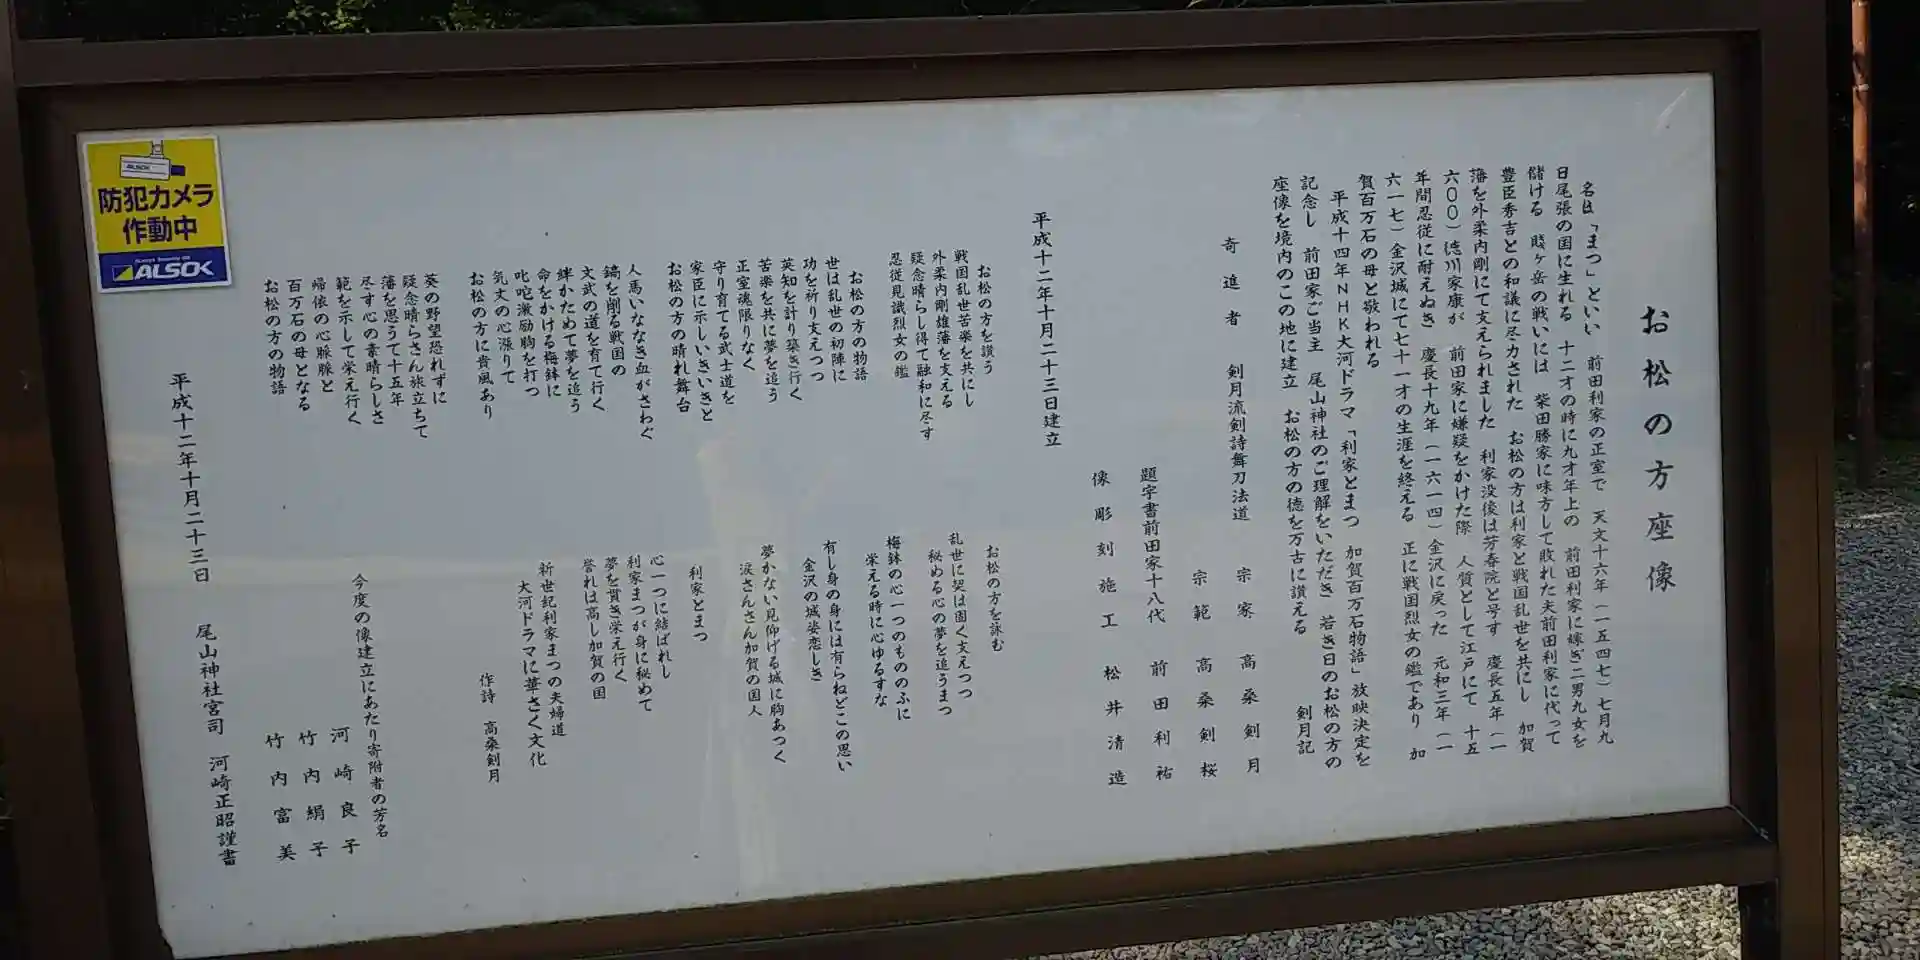 お松の方座像
名は「まつ」といい 前田利家の正室で 天文十六年(一五四七)七月九
日尾張の国に生れる 十二才の時に九才年上の 前田利家に嫁ぎ二男九女を
儲ける 賤ヶ岳の戦いには 柴田勝家に味方して敗れた夫前田利家に代って
豊臣秀吉との和議に尽力された お松の方は利家と戦国乱世を共にし 加賀
藩を外柔内剛にて支えられました 利家没後は芳春院と号す 慶長五年(一
六〇〇)徳川家康が 前田家に嫌疑をかけた際 人質として江戸にて 十五
年間忍従に耐えぬき 慶長十九年(一六一四)金沢に戻った 元和三年(一
六一七)金沢城にて七十一才の生涯を終える 正に戦国烈女の鑑であり 加
賀百万石の母と敬われる
平成十四年NHK大河ドラマ「利家とまつ 加賀百万石物語」放映決定を
記念し 前田家ご当主 尾山神社のご理解をいただき 若き日のお松の方の
座像を境内のこの地に建立 お松の方の徳を万古に讃える 剣月記
寄進者 剣月流剣詩舞刀法道 宗家 高桑剣月
宗範 高桑剣桜
題字書前田家十八代 前田利祐
像彫刻施工 松井清造
平成十二年十月二十三日建立
お松の方を讃う
戦国乱世苦楽を共にし
外柔内剛雄藩を支える
疑念晴らし得て融和に尽す
忍従見識烈女の鑑
お松の方の物語
世は乱世の初陣に
功を祈り支えつつ
英知を計り築き行く
苦楽を共に夢を追う
正室魂限りなく
守り育てる武士道を
家臣に示しいきいきと
お松の方の晴れ舞台
人馬いななき血がさわぐ
鎬を削る戦国の
文武の道を育て行く
絆かためて夢を追う
命をかける梅鉢に
叱咤激励胸を打つ
気丈の心漲りて
お松の方に貴風あり
葵の野望恐れずに
疑念晴らさん旅立ちて
藩を思うて十五年
尽す心の素晴らしさ
範を示して栄え行く
帰依の心脈脈と
百万石の母となる
お松の方の物語
お松の方を詠む
乱世に契は固く支えつつ
秘める心の夢を追うまつ
梅鉢の心一つのもののふに
栄える時に心ゆるすな
有し身の身には有らねどこの思い
金沢の城姿恋しき
夢かない見仰げる城に胸あつく
涙さんさん加賀の国人
利家とまつ
心一つに結ばれし
利家まつが身に秘めて
夢を貫き栄え行く
誉れは高し加賀の国
新世紀利家まつの夫婦道
大河ドラマに華さく文化
作詩 高桑剣月
今度の像建立にあたり寄附者の芳名
河崎良子
竹内絹子
竹内富美
平成十二年十月二十三日 尾山神社宮司 河崎正昭謹書
ALSOK
防犯カメラ
作動中
ALSOK